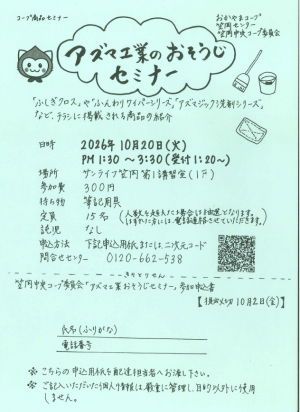 コープ商品セミナー
おかやまコープ
笠岡センター
笠岡中央コープ委員会
アズマ工業のおそうじ
セミナー
"ふしぎクロス"や"ふんわりワイパーシリーズ"、"アズマジック洗剤シリーズ"
など、チラシに掲載される商品の紹介
日時 2026年10月20日(火)
PM1:30~3:30(受付1:20~)
場所 サンライフ笠岡 第1講習室(1F)
参加費 300円
持ち物 筆記用具
定員 15名 (人数を超えた場合は抽選となります。
はずれた方には、電話連絡させていただきます。)
託児 なし
申込方法 下記申込用紙または、二次元コード
問合せセンター 0120-662-538
きりとりせん
笠岡中央コープ委員会「アズマ工業おそうじセミナー」参加申込書
【提出〆切 10月2日(金)】
氏名(ふりがな)
電話番号
※ こちらの申込用紙を配達担当者へお渡し下さい。
※ ご記入いただいた個人情報は、厳重に管理し、目的以外に使用
しません。